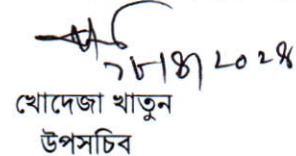 ২৮।৪।২০২৪
খোদেজা খাতুন
উপসচিব